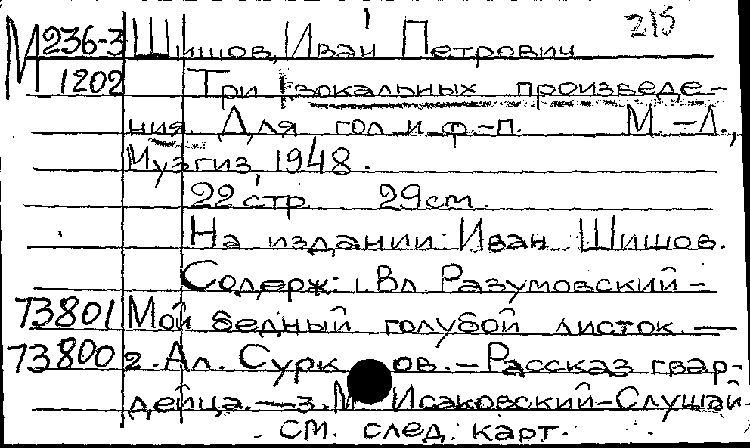 215
М 236-3 Шишов, Иван Петрович
1202 Три вокальных произведе-
ния. Для гол. и ф-п. М.-Л.,
Музгиз, 1948.
22 стр. 29 см.
На издании: Иван Шишов.
Содерж: 1. Вл. Разумовский -
73801 Мой бедный голубой листок. —
73800 2. Ал. Сурков. - Рассказ гвар-
дейца. — 3. М. Исаковский - Слушай
см. след. карт.